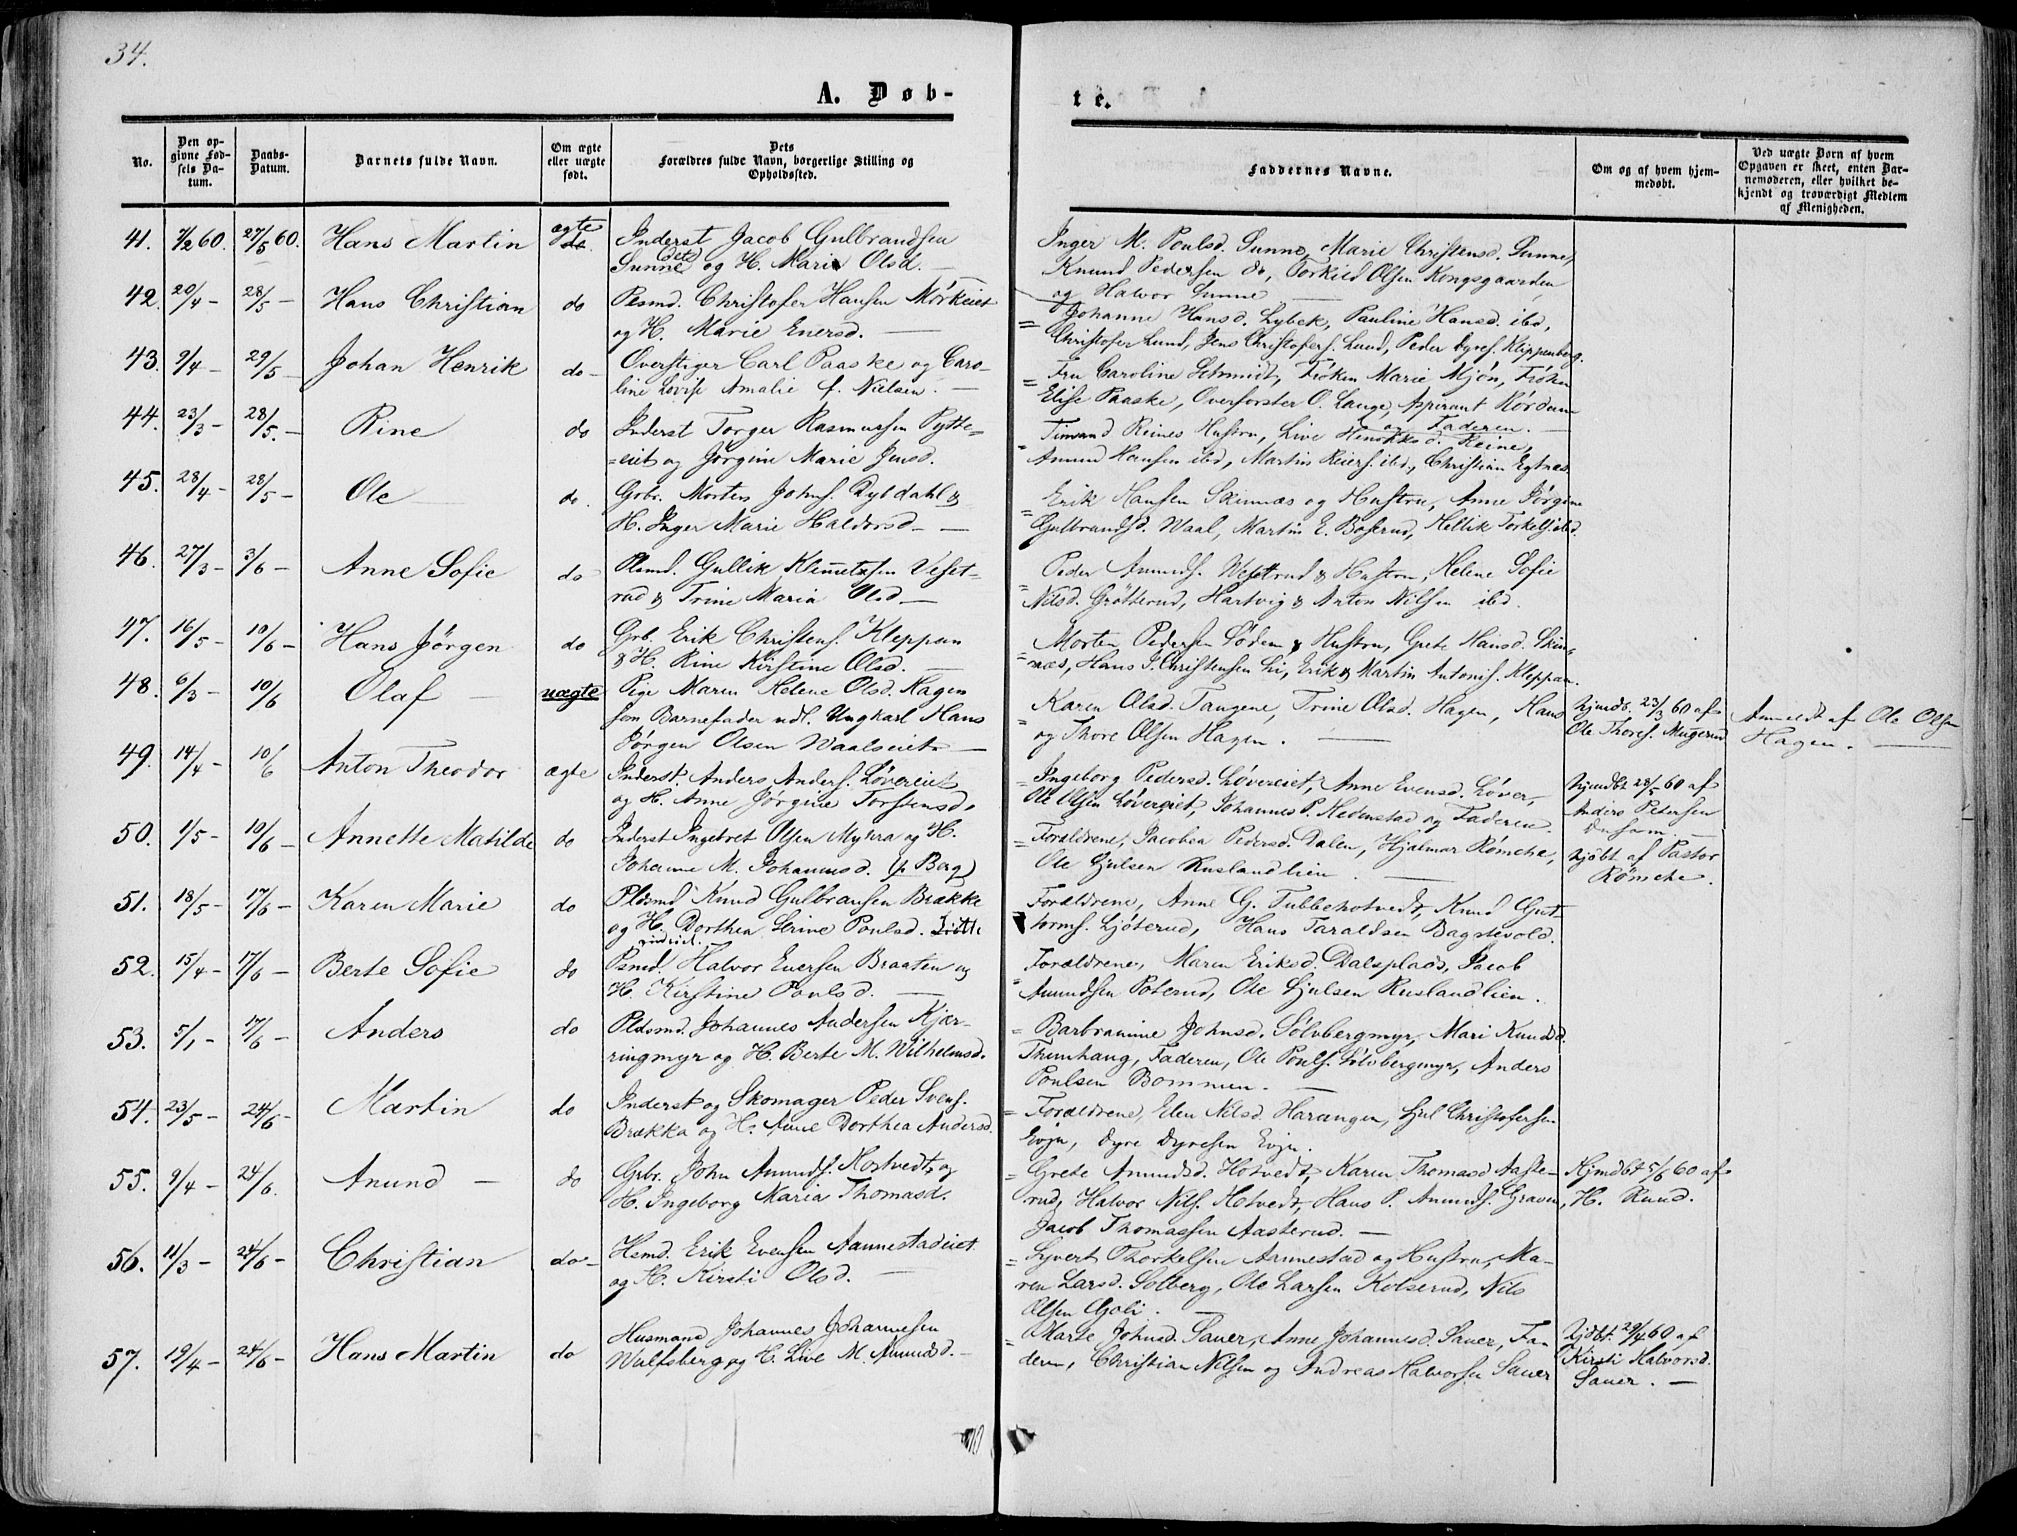 34.
A. Døb-
te.
No.
Den op-
givne Fød-
sels Da-
tum.
Daabs-
Datum.
Barnets fulde Navn.
Om ægte
eller uægte
født.
Dets
Forældres fulde Navn, borgerlige Stilling og
Opholdssted.
Faddernes Navne.
Om og af hvem hjem-
medøbt.
Ved uægte Børn af hvem
Opgaven er skeet, enten Bar-
nemoderen, eller hvilket be-
kjendt og troværdigt Medlem
af Menigheden.
41. 7/2 60. 27/5 60. Hans Martin ægte do.
Inderst Jacob Gulbrandsen
Sunne og H. Marie Olsd. —
Inger M. Poulsd. Sunne, Marie Christensd. Sunne,
Knund Pedersen do, Torkild Olsen Kongsgaarden
og Halvor Sunne —
42. 20/4 - 28/5 - Hans Christian do
Pesmd. Christofer Hansen Mørkeiet
og H. Marie Enersd. —
Johanne Hansd. Lybek, Pauline Hansd. ibd,
Christofer Lund, Jens Christofers. Lund, Peder Dyres. Klippenberg.
43. 9/4 - 29/5 - Johan Henrik do -
Overstiger Carl Paaske og Caro-
line Lovise Amalie f. Nielsen. —
= Fru Caroline Schmidt, Frøken Marie Mjøn, Frøken
Elise Paaske, Overforster O. Lange, Aspirant Rørdam
og Faderen. —
44. 23/3 - 28/5. - Rine do
Inderst Torger Rasmussen Pytte=
=eiet og Jørgine Marie Jensd.
Reines Hustru, Live Henriksd. Reine,
= Amund Hansen ibd, Martin Reiers. ibd, Christian Egtnes
45. 28/4 - 28/5 - Ole — do.
Grbr. Morten Johns. Dybdahl &
H. Inger Marie Haldorsd - —
Erik Hansen Skinnæs og Hustru, Anne Jørgine
Gulbrandsd. Waal, Martin E. Boserud, Hellik Torkels. ibd.
46. 27/3 - 3/6 - Anne Sofie do
Plsmd. Gullik Klemetsen Veset-
rud & Trine Maria Olsd —
Peder Amunds. Wesetrud & Hustru, Helene Sofie
Nilsd. Grøtterud, Hartvig & Anton Nilsen ibd.
47. 16/5 - 10/6 - Hans Jørgen do
Grb. Erik Christens. Kleppan
& H. Rine Kirstine Olsd. —
Morten Pedersen Søden & Hustru, Grete Hansd. Skin-
næs, Hans J. Christensen Li, Erik & Martin Antonis. Kleppan.
48. 6/3 - 10/6 Olaf — uægte
Pige Maren Helene Olsd. Hagen
som Barnefader udl. Ungkarl Hans
Jørgen Olsen Waalseiet —
Karen Olsd. Tangene, Trine Olsd. Hagen, Hans
og Thore Olsen Hagen. —
Hjmdb. 23/3 60 af
Ole Thores. Mugerud
Anmeldt af Ole Olsen
Hagen. —
49. 14/4 - 10/6 Anton Theodor ægte
Inderst. Anders Anders. Løvereiet
og H. Anne Jørgine Torstensd.
= Ingeborg Pedersd. Løvereiet, Anne Evensd. Løver,
Ole Olsen Løvereiet, Johannes P. Hedenstad og Faderen.
Hjmdbt 28/5 60 af
Anders Petersen
50. 1/5 - 10/6 - Annette Matilde do
Inderst Ingebret Olsen Myhra og H.
Johanne M. Johannesd. (f. Berg)
= Forældrene, Jacobea Pedersd. Dalen, Hjalmar Rømcke,
Ole Gjulsen Ruslandlien —
Hjdbt af Pastor
Rømcke.
51. 18/5 - 17/6 - Karen Marie do
Pldsmd Knud Gulbransen Brække
og H. Dorthea Serine Poulsd.
Forældrene, Anne G. Tubbehotvedt, Knud Gut-
torms. Ljøterud, Hans Taraldsen Bagstevold.
52. 15/4 - 17/6 - Berte Sofie do
Psmd. Halvor Eversen Braaten og
H. Kirstine Poulsd. —
Forældrene, Maren Eriksd. Dalsplads, Jacob
= Amundsen Poterud, Ole Gjulsen Ruslandlien.
53. 5/1 - 17/6 - Anders do
Pldsmd. Johannes Andersen Kjær-
ringmyr og H. Berte M. Wilhelmsd.
= Barbraanne Johnsd. Sølvbergmyr, Mari Knudsd.
Thunhaug, Faderen, Ole Pouls. Sølvbergmyr, Anders
Poulsen Bommen. —
54. 23/5 - 24/6 - Martin do
Inderst og Skomager Peder Svens.
Brækka og H. Anne Dorthea Andersd.
= Forældrene, Elen Nilsd. Harangen, Gjul Christofersen
Evju, Dyre Dyresen Evju.
55. 9/4 - 24/6. Anund — do
Grbr. John Amunds. Hostvedt og
H. Ingeborg Maria Thomasd.
= Grete Amundsd. Hotvedt, Karen Thomasd Aaste-
rud, Halvor Nils. Hotvedt, Hans P. Amunds. Graven,
Jacob Thomassen Aasterud. —
Hjmdbt 5/6 60 af
H. Ruud.
56. 11/3 - 24/6 - Christian do -
Hsmd. Erik Evensen Aannestadeiet
og H. Kirsti Olsd. —
= Syvert Thorkelsen Aannestad og Hustru, Ma-
ren Larsd. Solberg, Ole Larsen Kolserud, Nils
Olsen Goli. —
57. 19/4 - 24/6 - Hans Martin do
Husmand Johannes Johannesen
Wulfsberg og H. Live M. Amundsd. —
= Marte Johnsd. Sauer, Anne Johannesd. Sauer, Fa-
deren, Christian Nilsen og Andreas Halvorsen Sauer
Hjdbt. 29/4 60 af
Kirsti Halvorsd.
Sauer. —